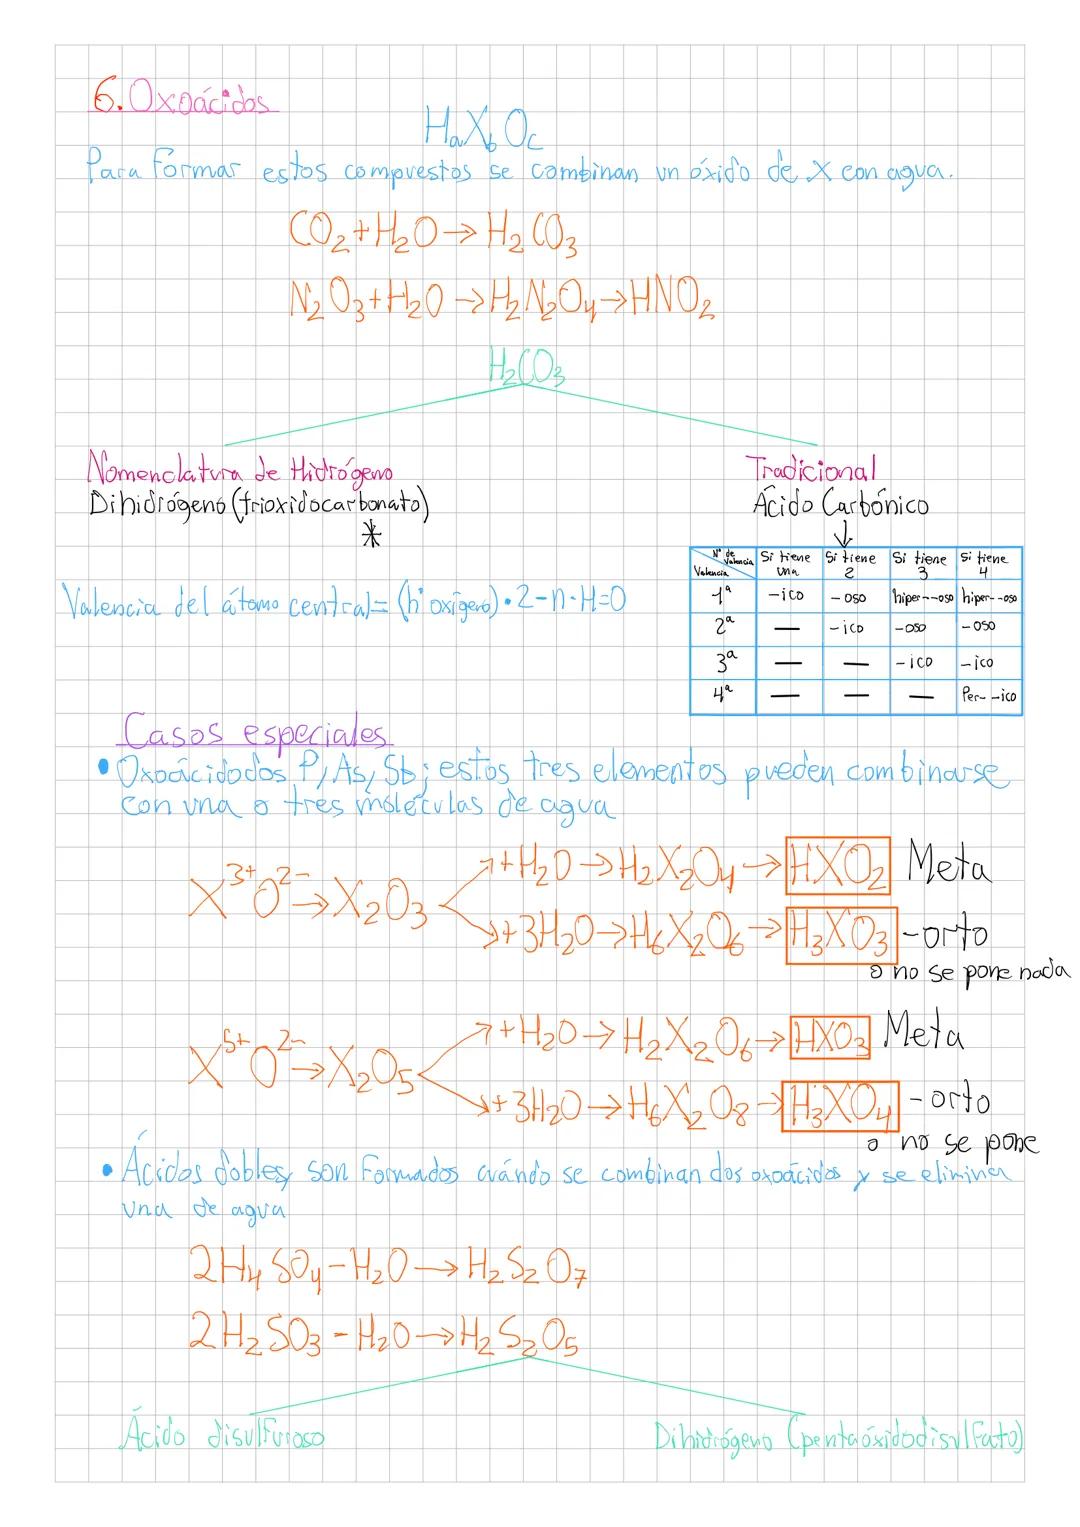 6. Oxoácidos
HaXbOc
Para formar estos compuestos se combinan un óxido de X con agua.
CO₂+H₂O→H₂CO₃
N₂O₃+H₂O→H₂N₂O₄→HNO₂
H₂CO₃
Nomenclatura de Hidrógeno
Dihidrógeno (trioxidocarbonato)
*
Tradicional
Ácido Carbónico
↓
Nº de Valencia Si tiene una Si tiene 2 Si tiene 3 Si tiene 4
Valencia
1ª -ico -oso hiper--oso hiper--oso
2ª — -ico -oso -oso
3ª — — -ico -ico
4ª — — — Per--ico
Valencia del átomo central=(nº oxígeno)·2-n·H=0
Casos especiales
• Oxoácidodos P, As, Sb; estos tres elementos pueden combinarse
con una o tres moléculas de agua
X³⁺O²⁻→X₂O₃
+H₂O→H₂X₂O₄→HXO₂ Meta
+3H₂O→H₆X₂O₆→H₃XO₃ -orto
o no se pone nada
X⁵⁺O²⁻→X₂O₅
+H₂O→H₂X₂O₆→HXO₃ Meta
+3H₂O→H₆X₂O₈→H₃XO₄ -orto
o no se pone
• Ácidos dobles, son formados cuándo se combinan dos oxoácidos y se elimina
una de agua
2H₄SO₄-H₂O→H₂S₂O₇
2H₂SO₃-H₂O→H₂S₂O₅
Ácido disulfuroso
Dihidrógeno (pentaóxidodisulfato)